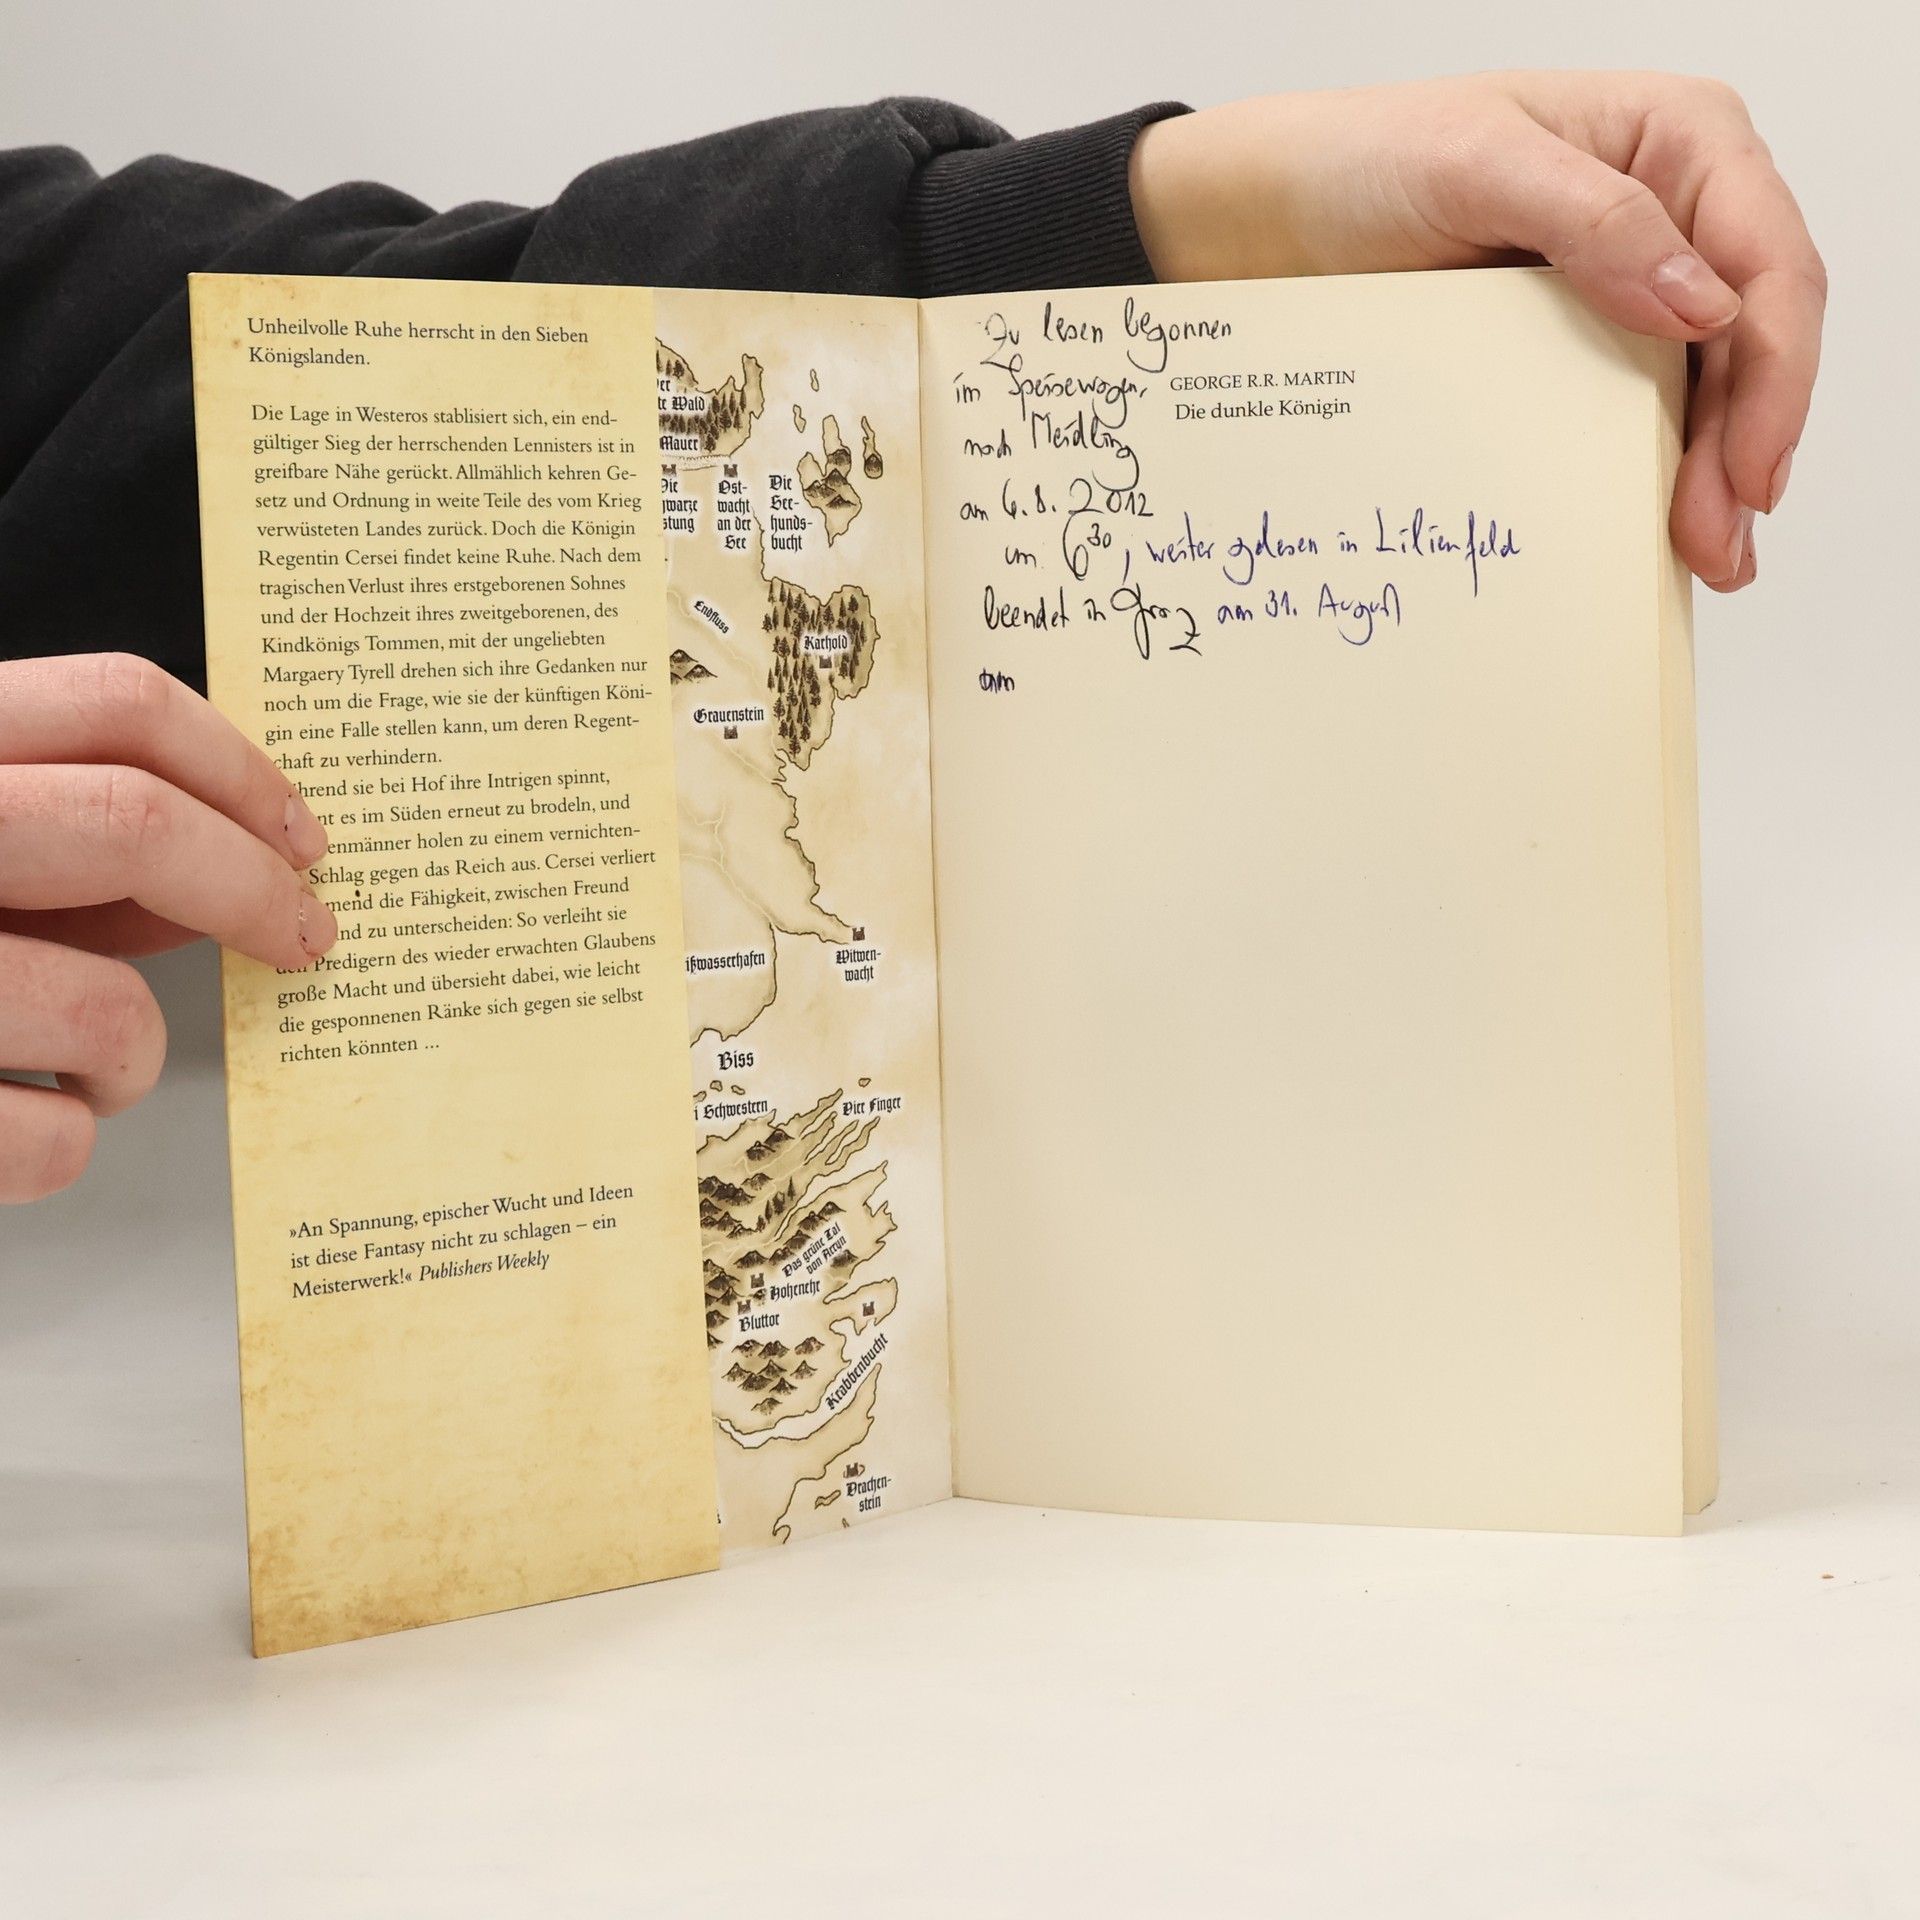 Unheilvolle Ruhe herrscht in den Sieben
Königslanden.
Die Lage in Westeros stablisiert sich, ein end-
gültiger Sieg der herrschenden Lennisters ist in
greifbare Nähe gerückt. Allmählich kehren Ge-
setz und Ordnung in weite Teile des vom Krieg
verwüsteten Landes zurück. Doch die Königin
Regentin Cersei findet keine Ruhe. Nach dem
tragischen Verlust ihres erstgeborenen Sohnes
und der Hochzeit ihres zweitgeborenen, des
Kindkönigs Tommen, mit der ungeliebten
Margaery Tyrell drehen sich ihre Gedanken nur
noch um die Frage, wie sie der künftigen Köni-
gin eine Falle stellen kann, um deren Regent-
chaft zu verhindern.
hrend sie bei Hof ihre Intrigen spinnt,
nt es im Süden erneut zu brodeln, und
enmänner holen zu einem vernichten-
Schlag gegen das Reich aus. Cersei verliert
mend die Fähigkeit, zwischen Freund
nd zu unterscheiden: So verleiht sie
den Predigern des wieder erwachten Glaubens
große Macht und übersieht dabei, wie leicht
die gesponnenen Ränke sich gegen sie selbst
richten könnten ...
»An Spannung, epischer Wucht und Ideen
ist diese Fantasy nicht zu schlagen – ein
Meisterwerk!« Publishers Weekly
er
te Wald
Mauer
Die
warze
stung
Ost-
wacht
an der
See
Die
See-
hunds-
bucht
Endfluss
Karhold
Grauenstein
ißwasserhafen
Witwen-
wacht
Biss
i Schwestern
Vier Finger
Das grüne Tal
von Arryn
Hohenehr
Bluttor
Krabbenbucht
Drachen-
stein
Zu lesen begonnen
im Speisewagen,
nach Meidling
am 6. 8. 2012
um 6³⁰, weiter gelesen in Lilienfeld
beendet in Graz am 31. August
GEORGE R.R. MARTIN
Die dunkle Königin